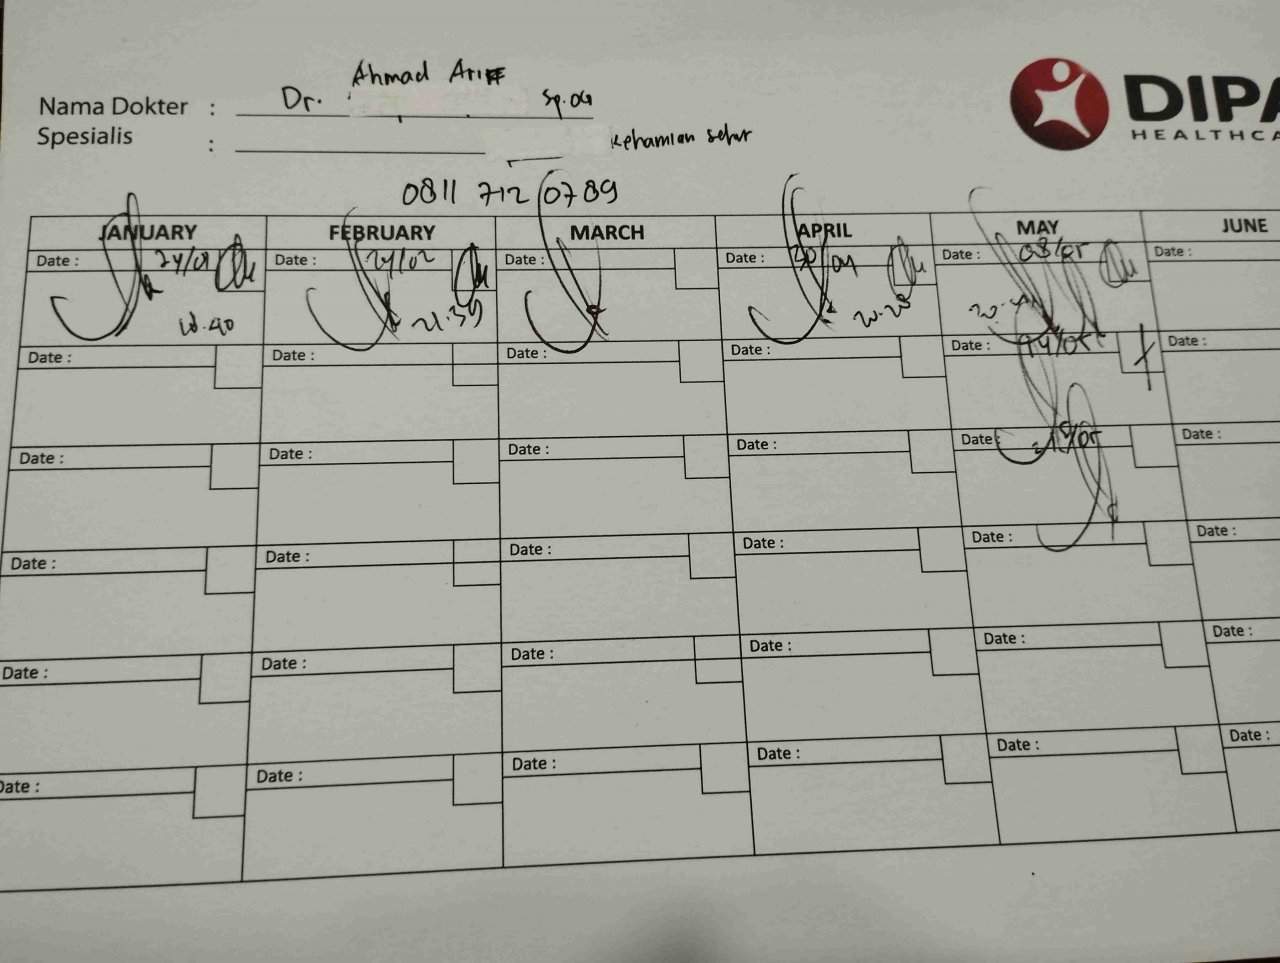 Ahmad Arif
Nama Dokter : Dr. Sp.OG
Spesialis : kehamilan sehat
DIPA
HEALTHCA
0811 712 0789
JANUARY FEBRUARY MARCH APRIL MAY JUNE
Date : 24/01 Date : 24/02 Date : Date : 30/04 Date : 08/05 Date :
21.39 20.28
Date : Date : Date : Date : Date : 14/05 Date :
Date : Date : Date : Date : Date : Date :
Date : Date : Date : Date : Date : Date :
Date : Date : Date : Date : Date : Date :
Date : Date : Date : Date : Date : Date :